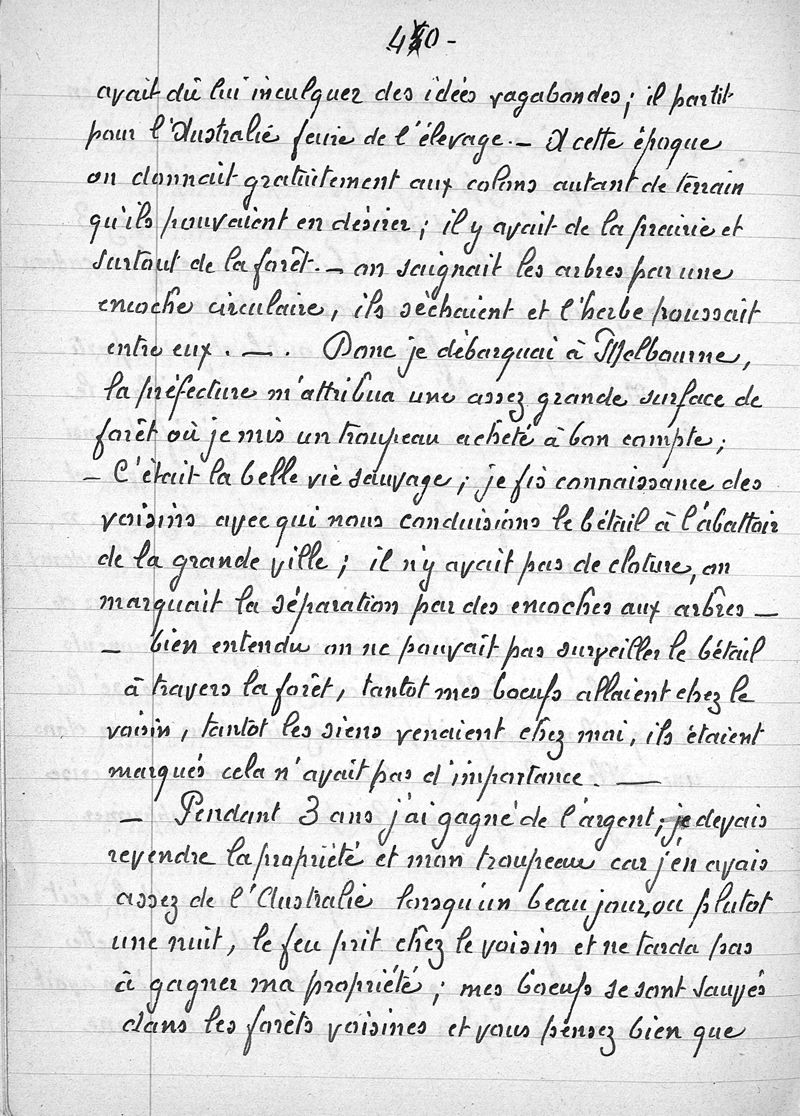 440 -
avait dû lui inculquer des idées vagabondes ; il partit
pour l'Australie faire de l'élevage. — A cette époque
on donnait gratuitement aux colons autant de terrain
qu'ils pouvaient en désirer ; il y avait de la prairie et
surtout de la forêt. — on saignait les arbres par une
encoche circulaire, ils séchaient et l'herbe poussait
entre eux . — . Donc je débarquai à Melbourne,
la préfecture m'attribua une assez grande surface de
forêt où je mis un troupeau acheté à bon compte ;
— C'était la belle vie sauvage ; je fis connaissance des
voisins avec qui nous conduisions le bétail à l'abattoir
de la grande ville ; il n'y avait pas de cloture, on
marquait la séparation par des encoches aux arbres —
— bien entendu on ne pouvait pas surveiller le bétail
à travers la forêt, tantot mes boeufs allaient chez le
voisin, tantot les siens venaient chez moi, ils étaient
marqués cela n'avait pas d'importance . —
— Pendant 3 ans j'ai gagné de l'argent ; je devais
revendre la propriété et mon troupeau car j'en avais
assez de l'Australie lorsqu'un beau jour, ou plutot
une nuit, le feu prit chez le voisin et ne tarda pas
à gagner ma propriété ; mes boeufs se sont sauvés
dans les forêts voisines et vous pensez bien que